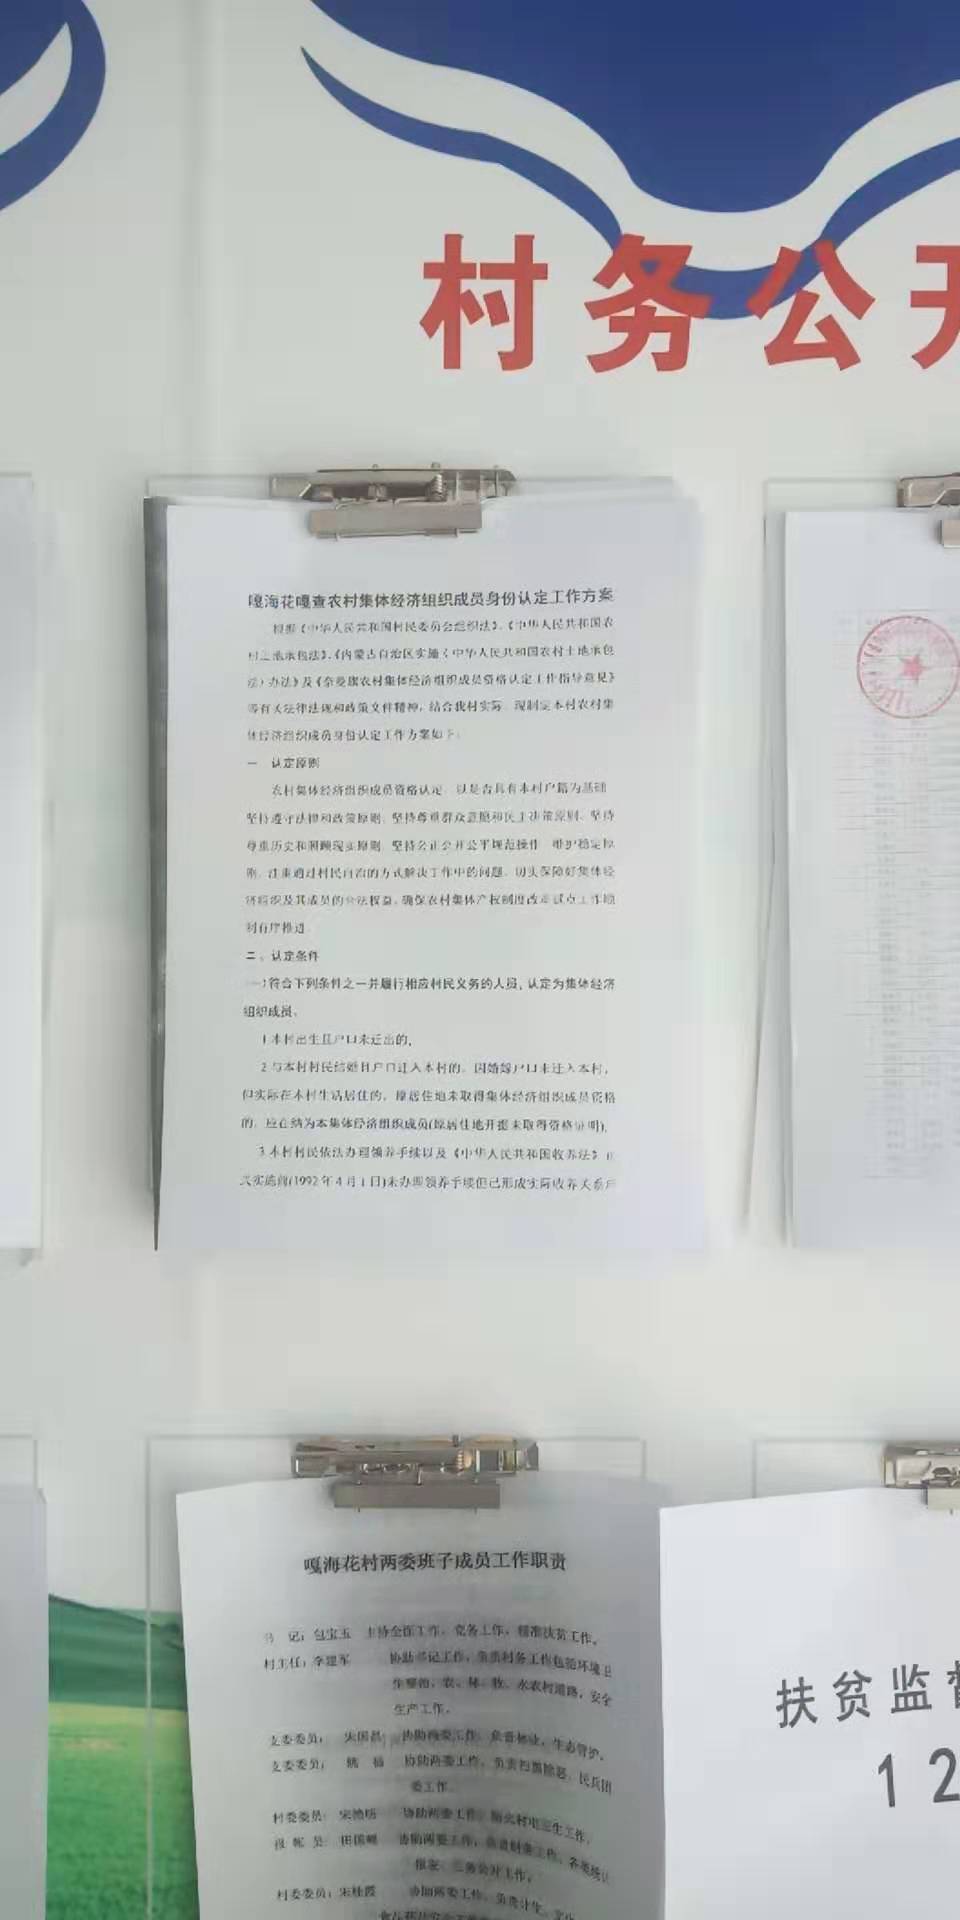 村务公开
嘎海花嘎查农村集体经济组织成员身份认定工作方案
根据《中华人民共和国村民委员会组织法》、《中华人民共和国农
村土地承包法》、《内蒙古自治区实施《中华人民共和国农村土地承包
法》办法》及《奈曼旗农村集体经济组织成员资格认定工作指导意见》
等有关法律法规和政策文件精神，结合我村实际，现制定本村农村集
体经济组织成员身份认定工作方案如下：
一、认定原则
农村集体经济组织成员资格认定，以是否具有本村户籍为基础，
坚持遵守法律和政策原则、坚持尊重群众意愿和民主决策原则、坚持
尊重历史和照顾现实原则、坚持公正公开公平规范操作、维护稳定原
则，注重通过村民自治的方式解决工作中的问题，切实保障好集体经
济组织及其成员的合法权益，确保农村集体产权制度改革试点工作顺
利有序推进。
二、认定条件
(一)符合下列条件之一并履行相应村民义务的人员，认定为集体经济
组织成员。
1.本村出生且户口未迁出的，
2.与本村村民结婚且户口迁入本村的。因婚嫁户口未迁入本村，
但实际在本村生活居住的，原居住地未取得集体经济组织成员资格
的，应在纳为本集体经济组织成员(原居住地开据未取得资格证明)，
3.本村村民依法办理领养手续以及《中华人民共和国收养法》正
式实施前(1992年4月1日)未办理领养手续但已形成实际收养关系户
嘎海花村两委班子成员工作职责
书 记：包宝玉 主持全面工作，党务工作，精准扶贫工作。
村主任：李建军 协助书记工作，负责村务工作包括环境卫
生整治，农、林、牧、水农村道路，安全
生产工作。
支委委员： 宋国昌： 协助两委工作，负责林业，生态管护。
支委委员： 姚 福 协助两委工作，负责扫黑除恶，民兵团
委工作。
村委委员： 协助两委工作，
报账员： 田国 协助两委工作，负责财务工作，各类统计
报表，三务公开工作。
村委委员：宋桂霞 协助两委工作，负责计生，文化
扶贫监督
12